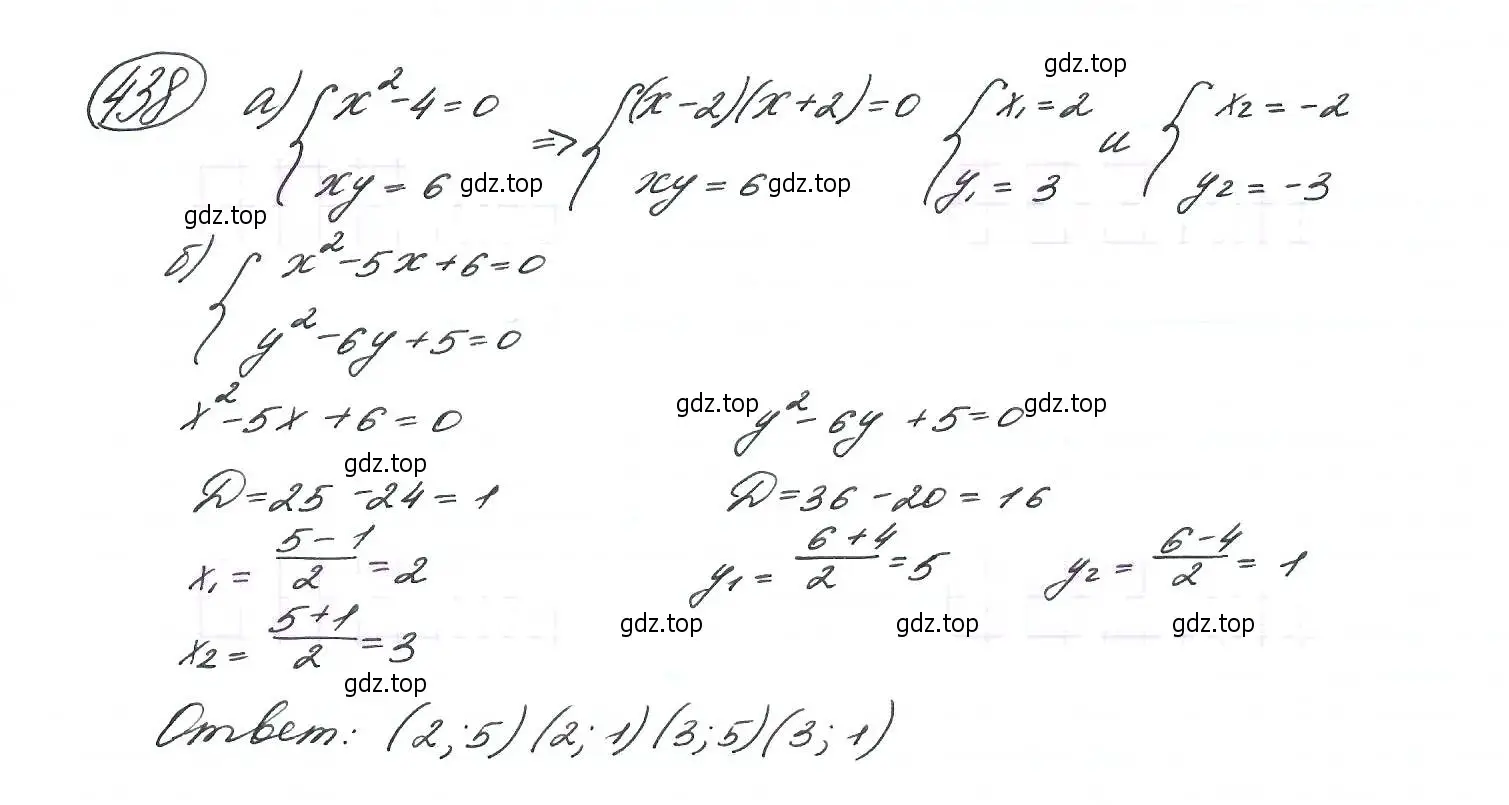 gdz.top
438 а) { x² - 4 = 0 ⇒ { (x - 2)(x + 2) = 0 { x₁ = 2 и { x₂ = -2
xy = 6 gdz.top xy = 6 gdz.top y₁ = 3 y₂ = -3
gdz.top
б) { x² - 5x + 6 = 0
y² - 6y + 5 = 0
x² - 5x + 6 = 0 gdz.top y² - 6y + 5 = 0 gdz.top
gdz.top
D = 25 - 24 = 1 D = 36 - 20 = 16
x₁ = (5 - 1)/2 = 2 y₁ = (6 + 4)/2 = 5 y₂ = (6 - 4)/2 = 1
gdz.top gdz.top gdz.top
x₂ = (5 + 1)/2 = 3
gdz.top
Ответ: (2; 5) (2; 1) (3; 5) (3; 1)